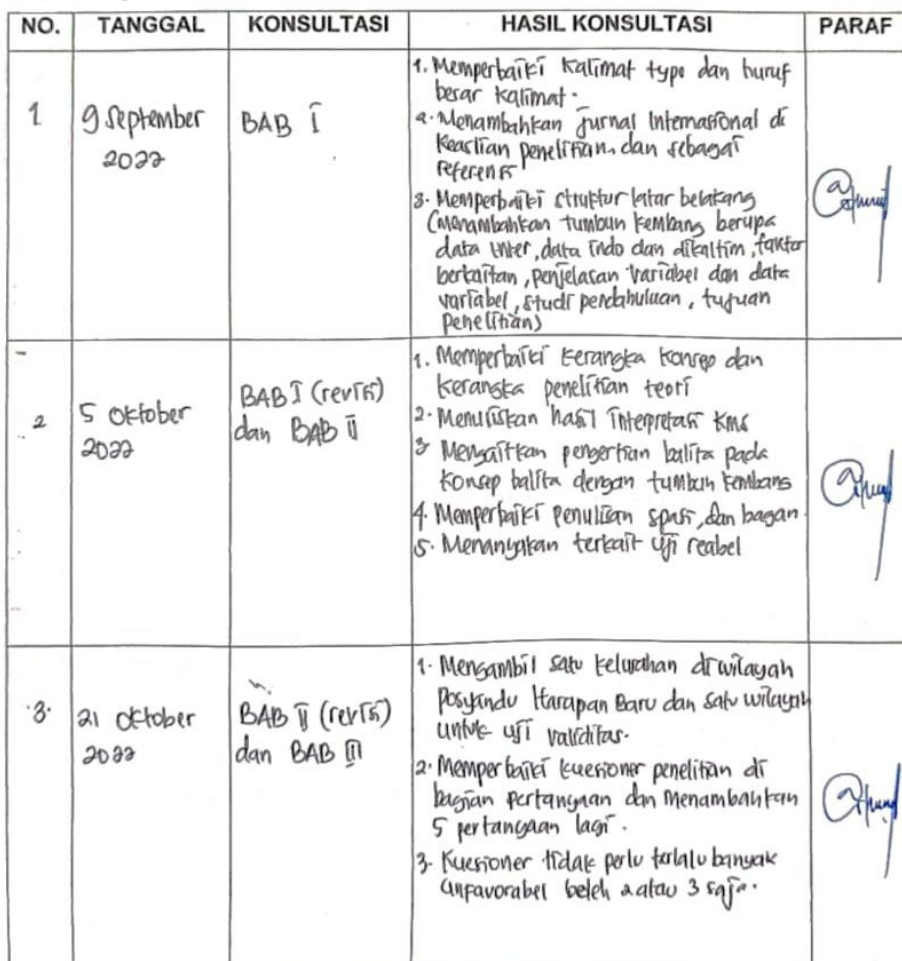 NO. TANGGAL KONSULTASI HASIL KONSULTASI PARAF
1 9 September 2022 BAB I
1. Memperbaiki Kalimat type dan huruf
besar kalimat.
2. Menambahkan jurnal Internasional di
Keaslian penelitian, dan sebagai
referensi
3. Memperbaiki struktur latar belakang
(menambahkan tumbuh kembang berupa
data inter, data indo dan dikaltim, faktor
berkaitan, penjelasan variabel dan data
variabel, studi pendahuluan, tujuan
Penelitian)
2 5 Oktober 2022 BAB I (revisi) dan BAB II
1. Memperbaiki kerangka konsep dan
kerangka penelitian teori
2. Menuliskan hasil interpretasi KMS
3 Mengaitkan pengertian balita pada
konsep balita dengan tumbuh kembang
4. Memperbaiki penulisan spasi, dan bagan
5. Menanyakan terkait uji reabel
3. 21 Oktober 2022 BAB II (revisi) dan BAB III
1. Mengambil satu kelurahan di wilayah
Posyandu Harapan Baru dan satu wilayah
untuk uji validitas.
2. Memperbaiki kuesioner penelitian di
bagian pertanyaan dan Menambahkan
5 pertanyaan lagi.
3. Kuesioner tidak perlu terlalu banyak
unfavorabel boleh 2 atau 3 saja.